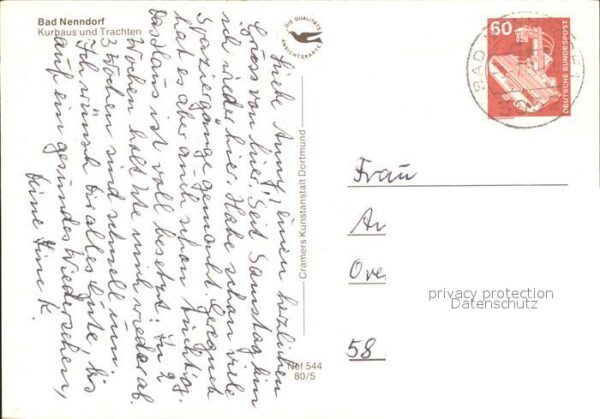 Bad Nenndorf
Kurhaus und Trachten
DIE QUALITÄTS
ANSICHTSKARTE
Liebe Anny, einen herzlichen
Gruss von hier! Seit Samstag bin
ich wieder hier. Habe schon viele
Spaziergänge gemacht. Geregnet
hat es aber auch schon tüchtig.
Das Haus ist voll besetzt. In 2
Wochen holt Ute mich wieder ab.
3 Wochen sind schnell um.
Ich wünsche Dir alles Gute, bis
auf ein gesundes Wiedersehen,
Deine K.
Cramers Kunstanstalt Dortmund
Nef 544
80/5
60
DEUTSCHE BUNDESPOST
BAD
Frau
Ar
Ove
58
privacy protection
Datenschutz